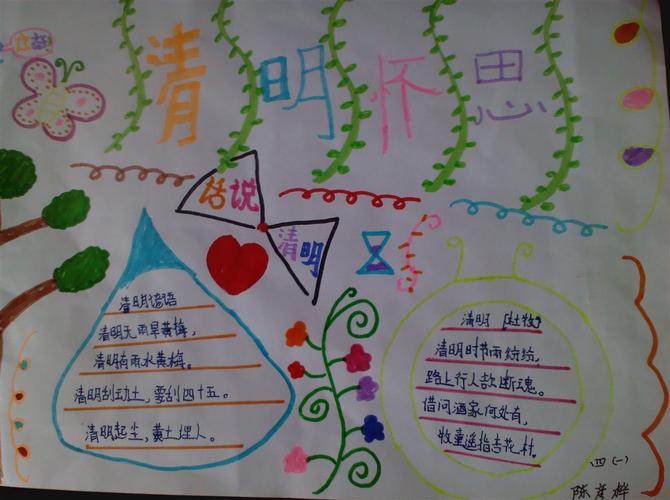 清明怀思
话说
清明
清明谚语
清明无雨旱黄梅，
清明有雨水黄梅。
清明刮动土，要刮四十五。
清明起尘，黄土埋人。
清明 [杜牧]
清明时节雨纷纷，
路上行人欲断魂。
借问酒家何处有，
牧童遥指杏花村。
四(一)
陈彦桦